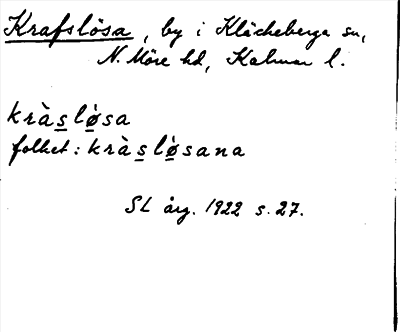 Krafslösa, by i Kläckeberga sn,
N. Möre hd, Kalmar l.
kràslø̀sa
folket: kràslø̀sana
SL årg. 1922 s. 27.